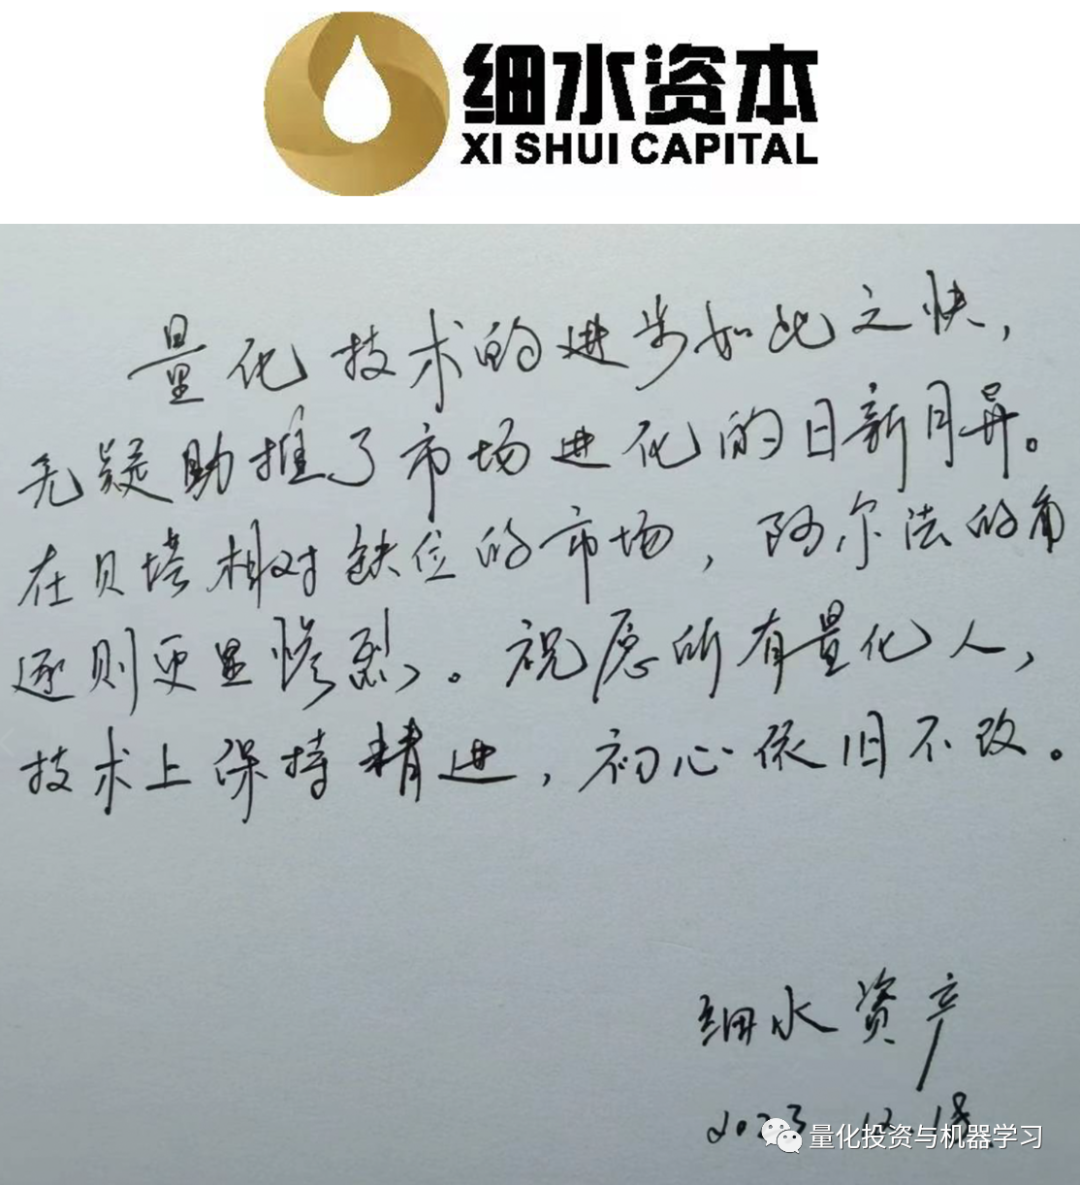 细水资本
XI SHUI CAPITAL
量化技术的进步如此之快，
无疑助推了市场进化的日新月异。
在贝塔相对缺位的市场，阿尔法的角
逐则更显惨烈。祝愿所有量化人，
技术上保持精进，初心依旧不改。
细水资产
2023.12.
量化投资与机器学习